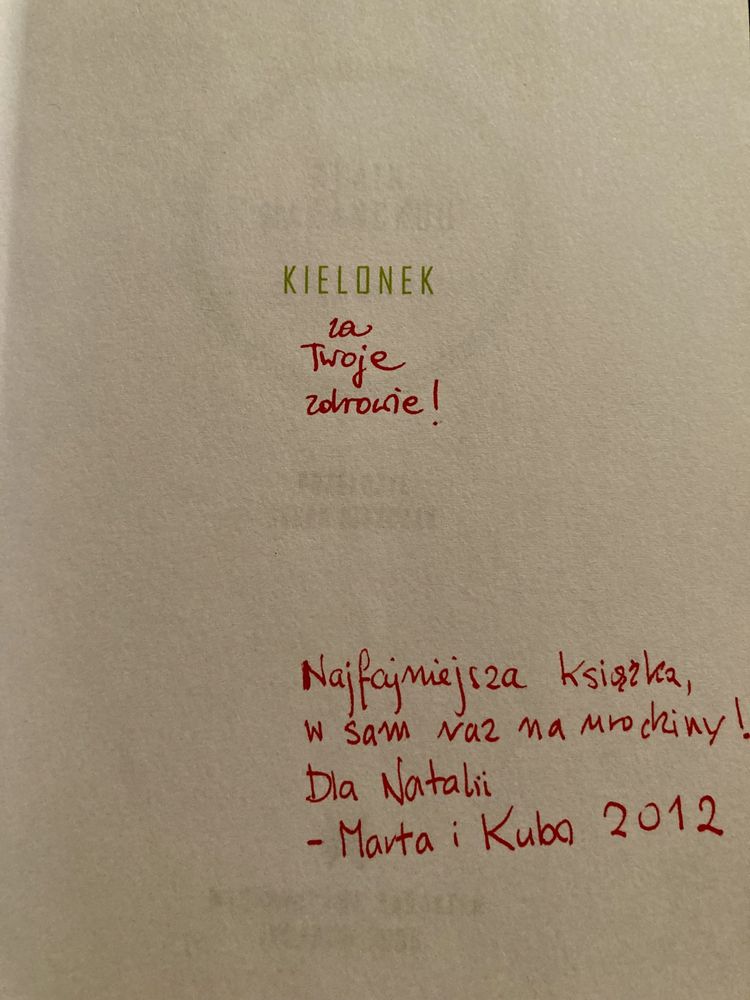 KIELONEK
za
Twoje
zdrowie!
Najfajniejsza książka,
w sam raz na urodziny!
Dla Natalii
- Marta i Kuba 2012